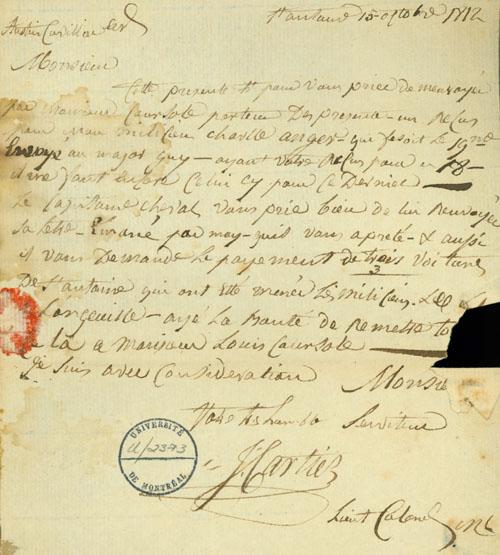 St antoine 15 octobre 1812
Austin Cuvillier
Monsieur
Cette presente Et pour Vous prier de menvoyé
par Monsieur Coursole porteur Des presente - un Recus
pour mon milicien charlle anger - qui fesoit le 19me
Envoye au major guy - ayant votre Recus pour
faut encore Celui Cy pour Ce Dernier
Le Capitaine cheval Vous prie bien de lui Renvoyer
sa letre - Emane par moy - quil Vous a preté - & aussi
il Vous Demande Le payement de trois Voitures
3
De St antoine qui ont Eté mené Les miliciens
Longeuille - ayé La Bonté de Remettre to
la a Monsieur Louis Coursole
Je suis avec Consideration Monsie
Votre tres humble Serviteur
J. Cartier
Lieut Colonel
UNIVERSITÉ
U/2373
DE MONTRÉAL